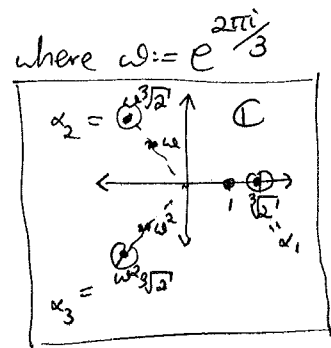 where ω := e^{2πi/3}
α₂ = ω∛2
ℂ
ω
1 ∛2
ω²
α₁
α₃ = ω²∛2